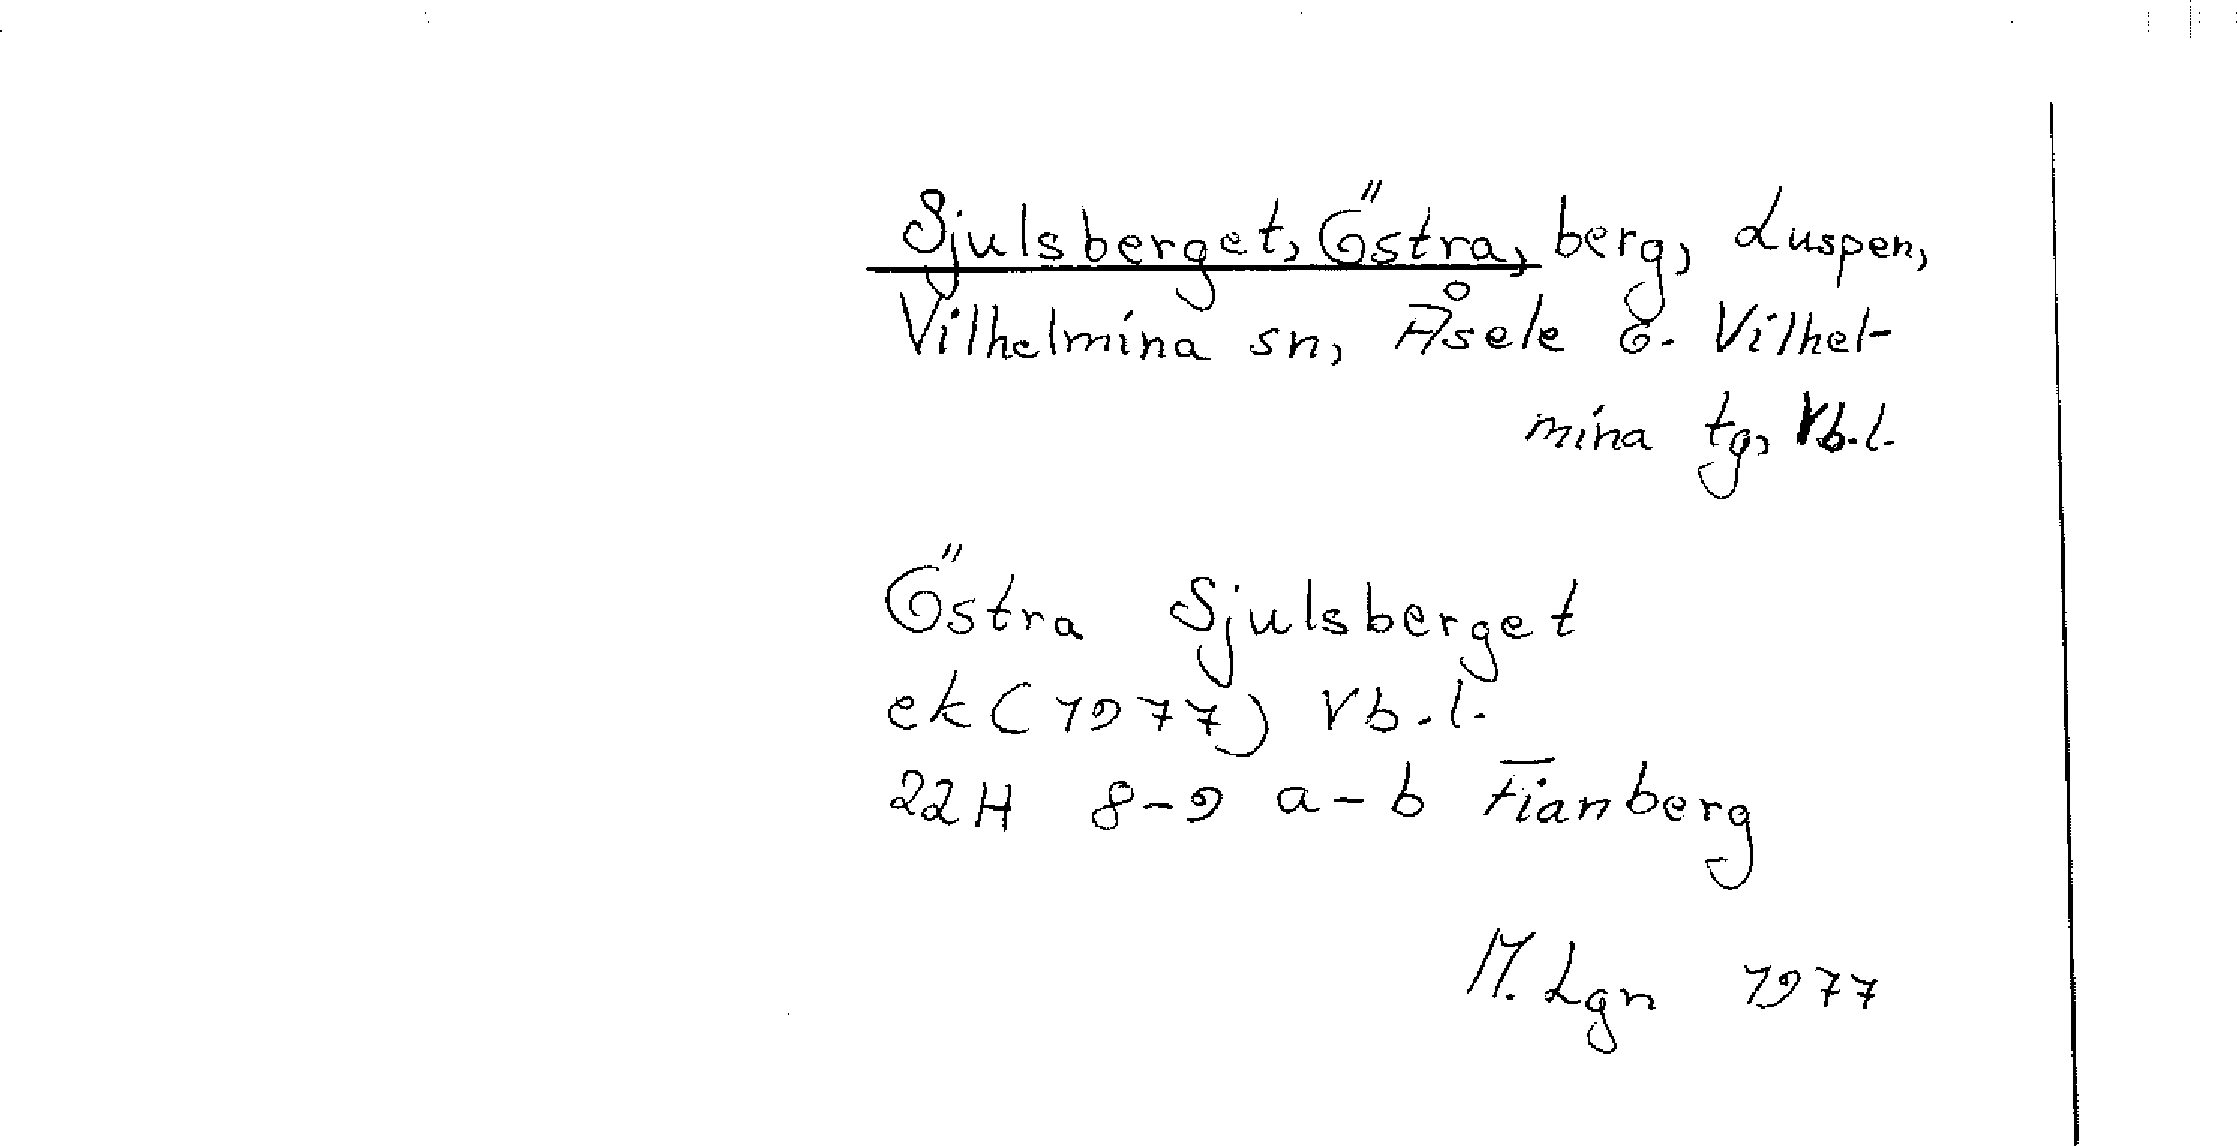 Sjulsberget, Östra, berg, Luspen,
Vilhelmina sn, Åsele o. Vilhel-
mina tg, Vb.l.
Östra Sjulsberget
ek (1977) Vb.l.
22H 8-9 a-b Fianberg
M. Lgn 1977